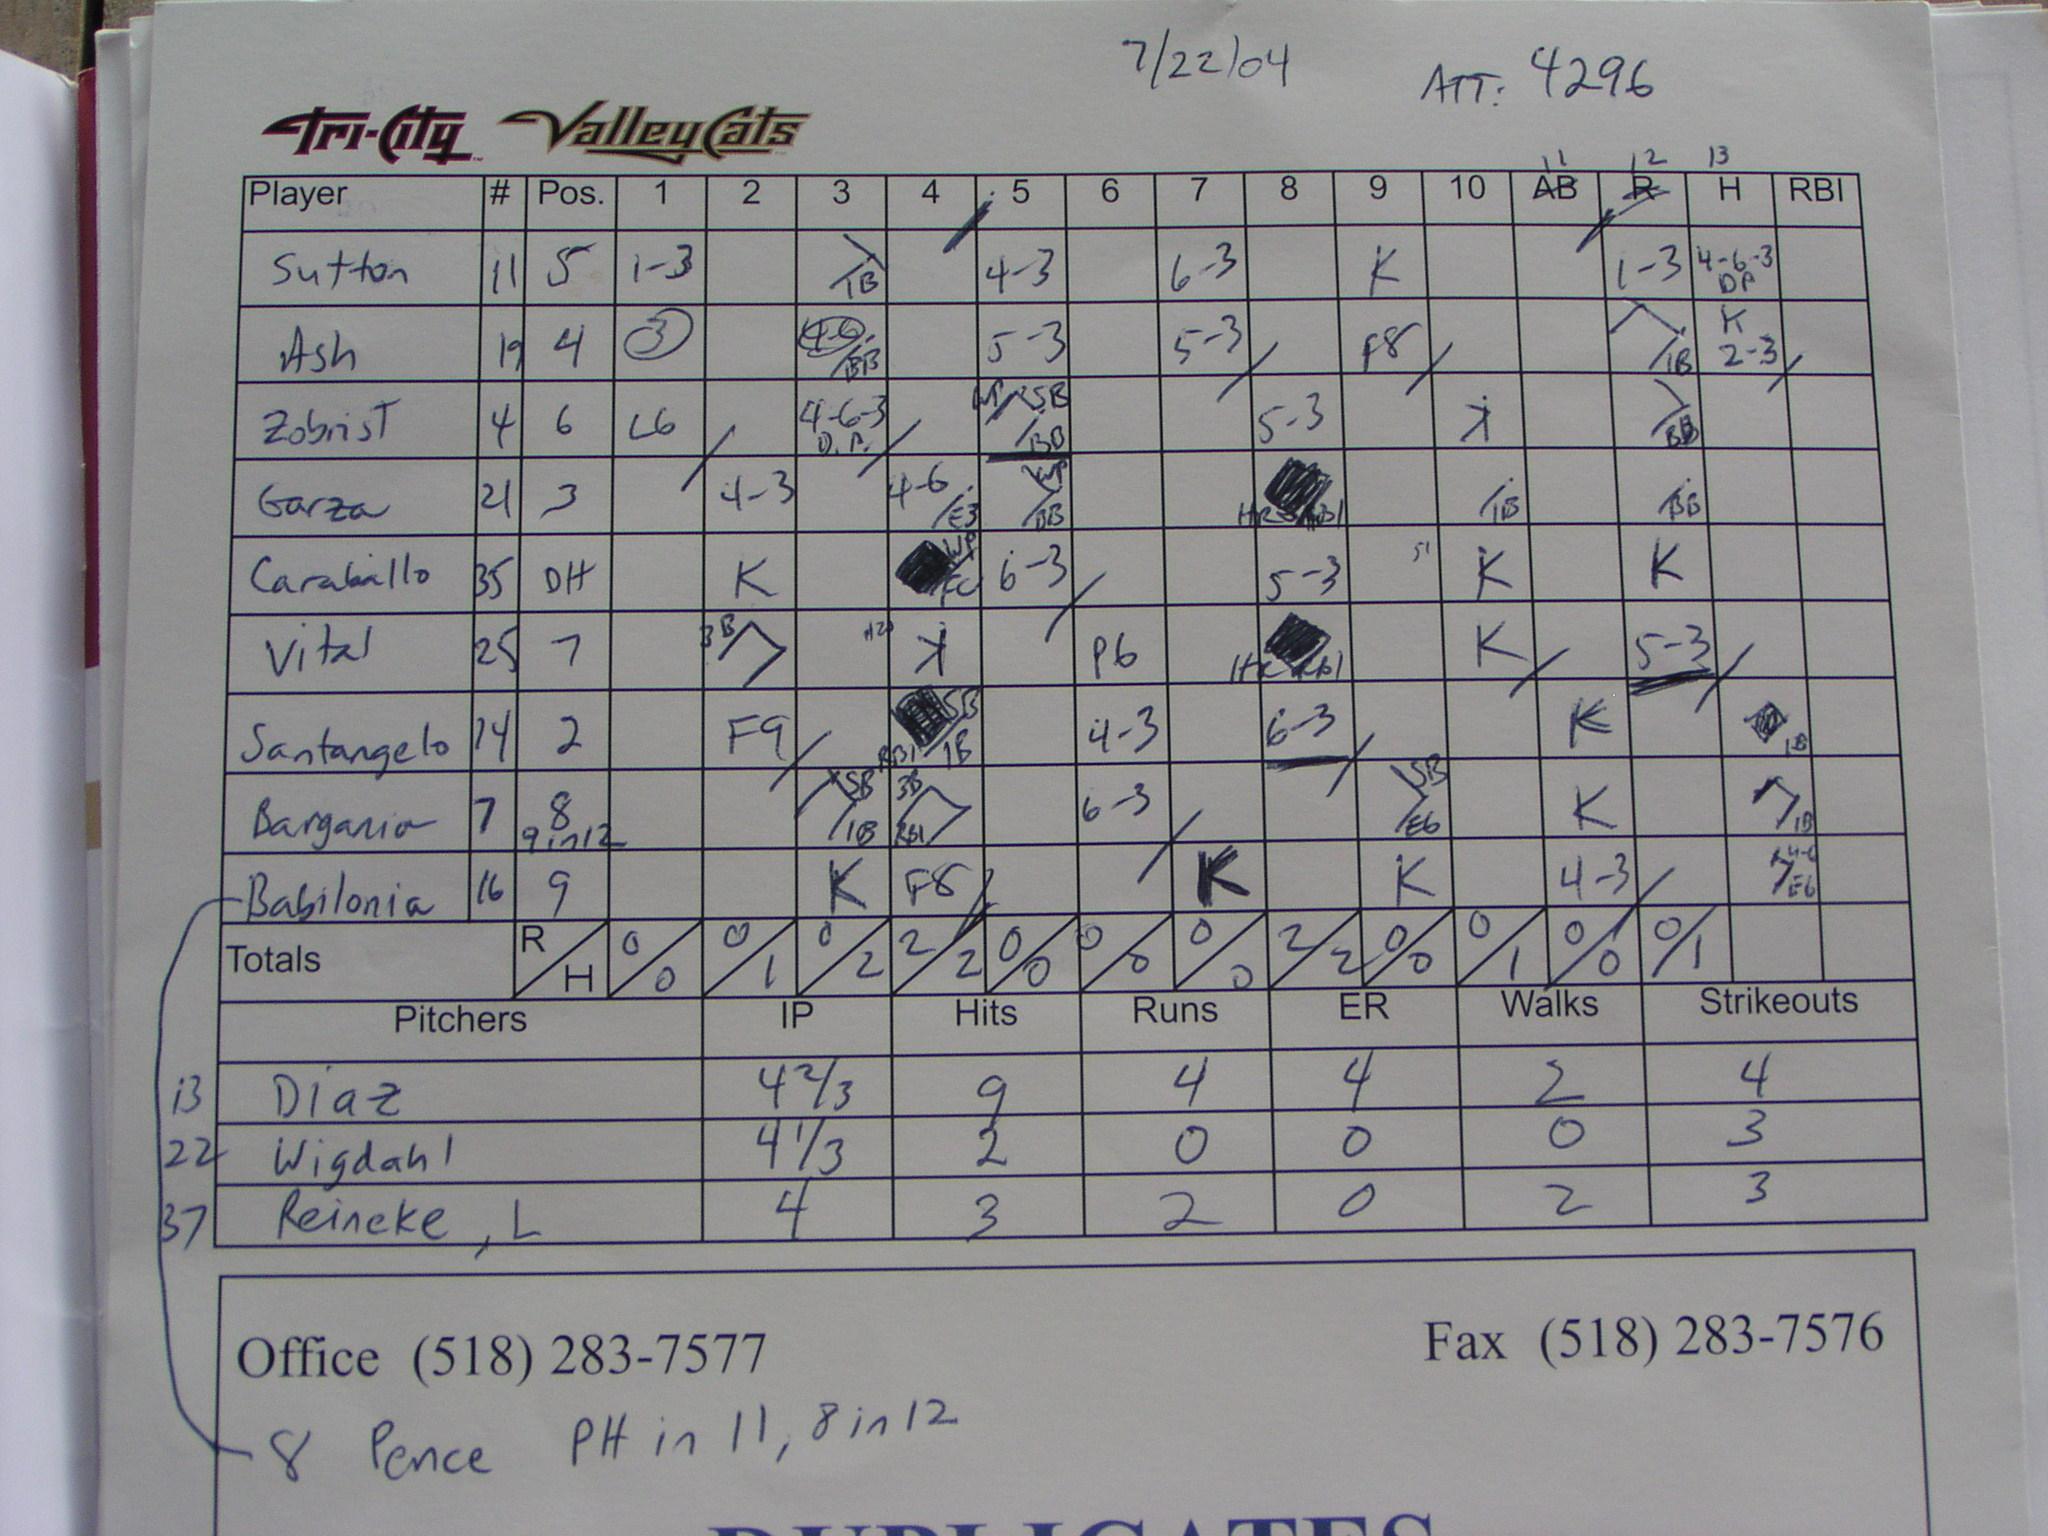 7/22/04 ATT: 4296
Tri-City ValleyCats
11 12 13
Player # Pos. 1 2 3 4 5 6 7 8 9 10 AB R H RBI
Sutton 11 5 1-3 1B 4-3 6-3 K 1-3 4-6-3 DP
Ash 19 4 3 4-6 BB 5-3 5-3 F8 1B K 2-3
Zobrist 4 6 L6 4-6-3 D.P. WP SB BB 5-3 K BB
Garza 21 3 4-3 4-6 E3 WP BB HR RBI 1B BB
Caraballo 35 DH K WP FC 6-3 5-3 K K
Vital 25 7 3B K P6 HR RBI K 5-3
Santangelo 14 2 F9 SB RBI 1B 4-3 6-3 K 1B
7 8 9 in 12 SB 1B 3B RBI 6-3 SB E6 K 1B
Babilonia 16 9 K F8 K K 4-3 4-6 E6
Totals R/H 0/0 0/1 0/2 2/2 0/0 0/0 0/0 2/2 0/0 0/1 0/0 0/1
Pitchers IP Hits Runs ER Walks Strikeouts
13 Diaz 4 2/3 9 4 4 2 4
22 Wigdahl 4 1/3 2 0 0 0 3
37 Reineke, L 4 3 2 0 2 3
Office (518) 283-7577 Fax (518) 283-7576
8 Pence PH in 11, 8 in 12
DUPLICATES